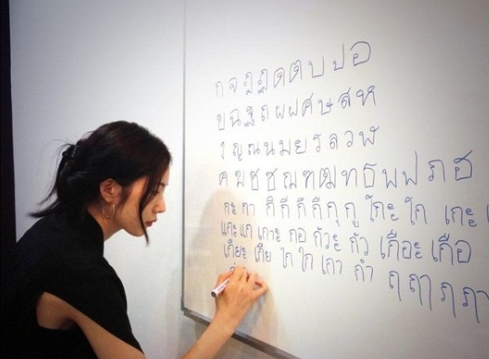 ก จ ฎ ฏ ด ต บ ป อ
ข ฉ ฐ ถ ผ ฝ ศ ษ ส ห
ง ญ ณ น ม ย ร ล ว ฬ
ค ฆ ช ซ ฌ ฑ ฒ ท ธ พ ฟ ภ ฮ
กะ กา กิ กี กึ กื กุ กู โกะ โก เกะ
แกะ แก เกาะ กอ กัวะ กัว เกือะ เกือ
เกียะ เกีย ไก ใก เกา กำ ฤ ฤๅ ฦ ฦๅ